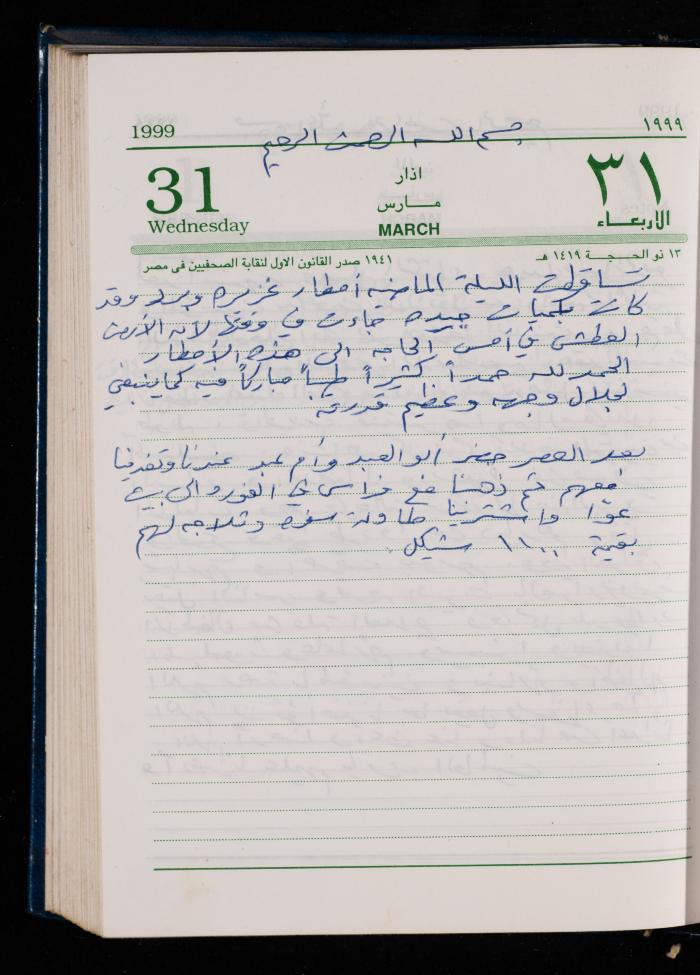 1999 ١٩٩٩
بسم الله الرحمن الرحيم
31 اذار ٣١
مـــارس
Wednesday MARCH الاربعـــاء
١٩٤١ صدر القانون الاول لنقابة الصحفيين فى مصر ١٣ ذو الحـجـــة ١٤١٩ هـ
تساقطت الليلة الماضيه أمطار غزيره وبرد وقد
كانت بكميات جيده جاءت في وقتها لأنه الأرض
العطشى في أمس الحاجه الى هذه الأمطار
الحمد لله حمداً كثيراً طيباً مباركاً فيه كما ينبغي
لجلال وجهه وعظيم قدرته
بعد العصر حضر أبو العبد وأم عبد عندنا وتغدينا
معهم ثم ذهبنا مع فراس في الفورد الى بيت
عوا واشترينا طاولة سفره وثلاجه لهم
بقيمة ١١٠٠ شيكل